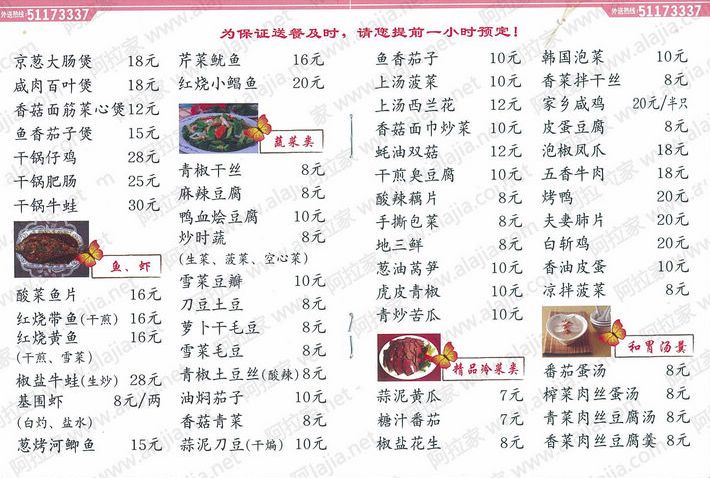 外送热线: 51173337
外送热线: 51173337
为保证送餐及时，请您提前一小时预定！
京葱大肠煲 18元
咸肉百叶煲 18元
香菇面筋菜心煲 12元
鱼香茄子煲 15元
干锅仔鸡 28元
干锅肥肠 25元
干锅牛蛙 30元
鱼、虾
酸菜鱼片 16元
红烧带鱼(干煎) 16元
红烧黄鱼 16元
(干煎、雪菜)
椒盐牛蛙(生炒) 28元
基围虾 8元/两
(白灼、盐水)
葱烤河鲫鱼 15元
芹菜鱿鱼 16元
红烧小鲳鱼 20元
蔬菜类
青椒干丝 8元
麻辣豆腐 8元
鸭血烩豆腐 10元
炒时蔬 8元
(生菜、菠菜、空心菜)
雪菜豆瓣 10元
刀豆土豆 8元
萝卜干毛豆 8元
雪菜毛豆 8元
青椒土豆丝(酸辣) 8元
油焖茄子 10元
香菇青菜 8元
蒜泥刀豆(干煸) 10元
鱼香茄子 10元
上汤菠菜 10元
上汤西兰花 12元
香菇面巾炒菜 10元
蚝油双菇 12元
干煎臭豆腐 10元
酸辣藕片 8元
手撕包菜 8元
地三鲜 8元
葱油莴笋 10元
虎皮青椒 10元
青炒苦瓜 10元
精品冷菜类
蒜泥黄瓜 7元
糖汁番茄 7元
椒盐花生 8元
韩国泡菜 10元
香菜拌干丝 8元
家乡咸鸡 20元/半只
皮蛋豆腐 8元
泡椒凤爪 18元
五香牛肉 18元
烤鸭 20元
夫妻肺片 20元
白斩鸡 20元
香油皮蛋 10元
凉拌菠菜 8元
和胃汤羹
番茄蛋汤 8元
榨菜肉丝蛋汤 8元
青菜肉丝豆腐汤 8元
香菜肉丝豆腐羹 8元